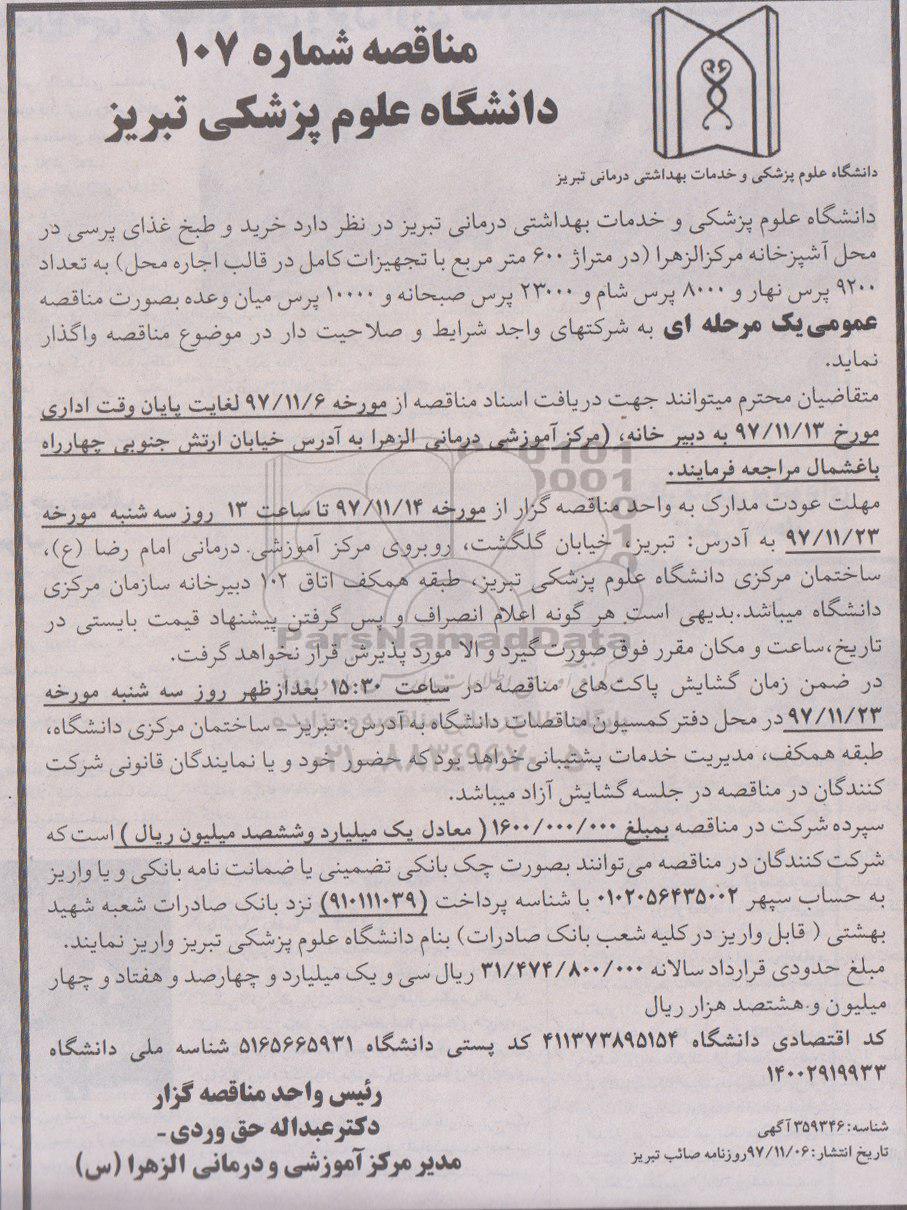 مناقصه شماره ۱۰۷
دانشگاه علوم پزشکی تبریز
دانشگاه علوم پزشکی و خدمات بهداشتی درمانی تبریز
دانشگاه علوم پزشکی و خدمات بهداشتی درمانی تبریز در نظر دارد خرید و طبخ غذای پرسی در
محل آشپزخانه مرکزالزهرا (در متراژ ۶۰۰ متر مربع با تجهیزات کامل در قالب اجاره محل) به تعداد
۹۲۰۰ پرس نهار و ۸۰۰۰ پرس شام و ۲۳۰۰۰ پرس صبحانه و ۱۰۰۰۰ پرس میان وعده بصورت مناقصه
عمومی یک مرحله ای به شرکتهای واجد شرایط و صلاحیت دار در موضوع مناقصه واگذار
نماید.
متقاضیان محترم میتوانند جهت دریافت اسناد مناقصه از مورخه ۹۷/۱۱/۶ لغایت پایان وقت اداری
مورخ ۹۷/۱۱/۱۳ به دبیر خانه، (مرکز آموزشی درمانی الزهرا به آدرس خیابان ارتش جنوبی چهارراه
باغشمال مراجعه فرمایند.
مهلت عودت مدارک به واحد مناقصه گزار از مورخه ۹۷/۱۱/۱۴ تا ساعت ۱۳ روز سه شنبه مورخه
۹۷/۱۱/۲۳ به آدرس: تبریز، خیابان گلگشت، روبروی مرکز آموزشی درمانی امام رضا (ع)،
ساختمان مرکزی دانشگاه علوم پزشکی تبریز، طبقه همکف اتاق ۱۰۲ دبیرخانه سازمان مرکزی
دانشگاه میباشد.بدیهی است هر گونه اعلام انصراف و پس گرفتن پیشنهاد قیمت بایستی در
تاریخ،ساعت و مکان مقرر فوق صورت گیرد و الا مورد پذیرش قرار نخواهد گرفت.
ParsNamadData
در ضمن زمان گشایش پاکت‌های مناقصه در ساعت ۱۵:۳۰ بعدازظهر روز سه شنبه مورخه
۹۷/۱۱/۲۳ در محل دفتر کمسیون مناقصات دانشگاه به آدرس: تبریز - ساختمان مرکزی دانشگاه،
طبقه همکف، مدیریت خدمات پشتیبانی خواهد بود که حضور خود و یا نمایندگان قانونی شرکت
کنندگان در مناقصه در جلسه گشایش آزاد میباشد.
سپرده شرکت در مناقصه بمبلغ ۱۶۰۰/۰۰۰/۰۰۰ ( معادل یک میلیارد وششصد میلیون ریال ) است که
شرکت کنندگان در مناقصه می‌توانند بصورت چک بانکی تضمینی یا ضمانت نامه بانکی و یا واریز
به حساب سپهر ۰۱۰۲۰۵۶۴۳۵۰۰۲ با شناسه پرداخت (۹۱۰۱۱۱۰۳۹) نزد بانک صادرات شعبه شهید
بهشتی ( قابل واریز در کلیه شعب بانک صادرات) بنام دانشگاه علوم پزشکی تبریز واریز نمایند.
مبلغ حدودی قرارداد سالانه ۳۱/۴۷۴/۸۰۰/۰۰۰ ریال سی و یک میلیارد و چهارصد و هفتاد و چهار
میلیون و هشتصد هزار ریال
کد اقتصادی دانشگاه ۴۱۱۳۷۳۸۹۵۱۵۴ کد پستی دانشگاه ۵۱۶۵۶۶۵۹۳۱ شناسه ملی دانشگاه
۱۴۰۰۲۹۱۹۹۳۳
رئیس واحد مناقصه گزار
دکترعبداله حق وردی-
مدیر مرکز آموزشی و درمانی الزهرا (س)
شناسه: ۳۵۹۳۴۶آگهی
تاریخ انتشار: ۹۷/۱۱/۰۶روزنامه صائب تبریز